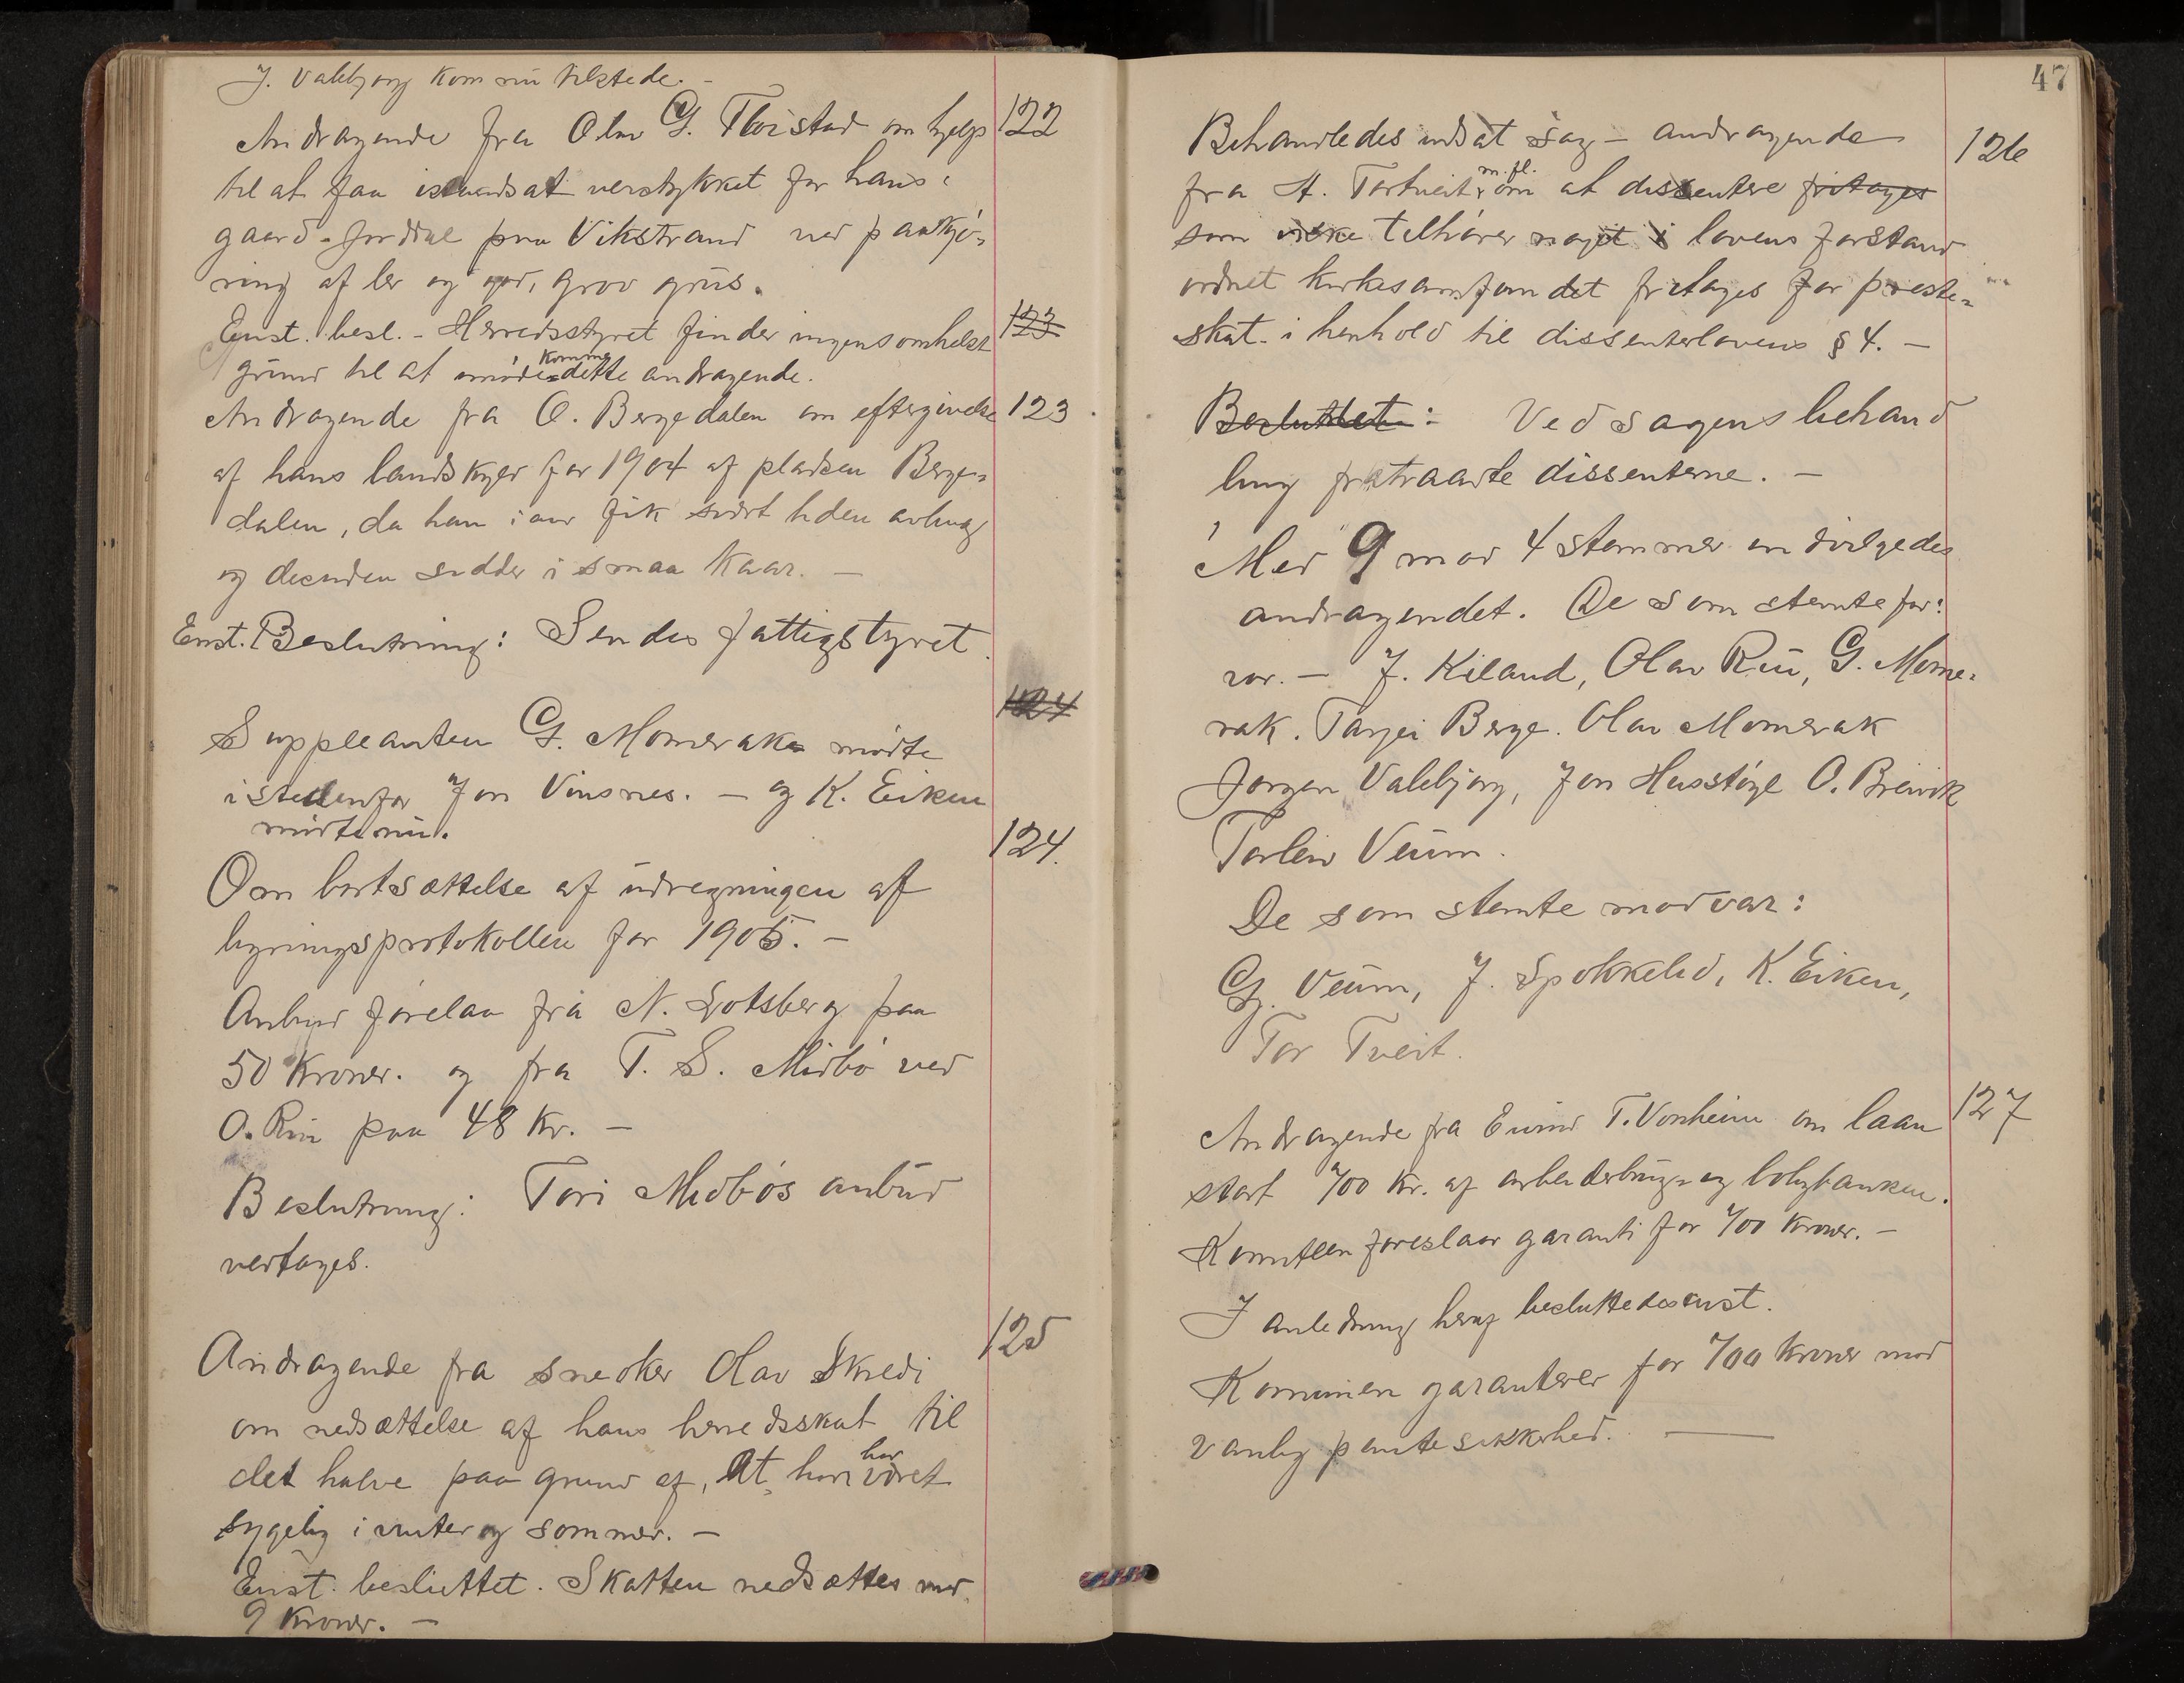 J. Valebjørg kom nu tilstede. -
Andragende fra Olav G. Floistad om hjelp 122
til at faa istandsat veistykket for hans
gaard-fordeel paa Vikstrand ved paakjø-
ring af ler og god, grov grus.
Enst. besl. - Herredsstyret finder ingensomhelst 123
grund til at imødekomme dette andragende.
Andragende fra O. Bergedalen om eftergivelse 123
af hans landskyld for 1904 af pladsen Berge-
dalen, da han i aar fik svært liden avling
og desuden sidder i smaa kaar. -
Enst. Beslutning: Sendes fattigstyret.
124
Suppleanten G. Momerak mødte
istedenfor Jon Vinsnes. - og K. Eiken
mødte nu.
124.
Om bortsættelse af udregningen af
ligningsprotokollen for 1905. -
Anbud forelaa fra N. Lotsberg paa
50 kroner. og fra T. S. Midbø ved
O. Rui paa 48 kr. -
Beslutning: Tori Midbøs anbud
vertages.
125
Andragende fra snedker Olav Skredi
om nedsættelse af hans herredsskat til
det halve paa grund af, at han har været
sygelig i vinter og sommer. -
Enst. besluttet. Skatten nedsættes med
9 kroner. -
47
Behandledes indsat sag - andragende 126
fra A. Tortveit m. fl. om at dissentere fritages
som ikke tilhører noget i lovens forstand
ordnet kirkesamfundet fritages for preste-
skat i henhold til dissenterlovens § 4. -
Besluttet: Ved sagens behand
ling fratraadte dissenterne. -
Med 9 mod 4 stemmer indvilgedes
andragendet. De som stemte for:
var. - J. Kiland, Olav Rui, G. Mome-
rak. Tarjei Berge. Olav Momerak
Jørgen Valebjørg, Jon Husstøyl O. Breivik
Torleiv Veum.
De som stemte mod var:
G. Veum, J. Spokkelid, K. Eiken,
Tor Tveit.
Andragende fra Eivind T. Vonheim om laan 127
stort 700 kr. af arbeiderbrug- og boligbanken.
Komiteen foreslaar garanti for 700 kroner. -
I anledning heraf besluttedes enst.
Kommunen garanterer for 700 kroner mod
vanlig pantesikkerhed.